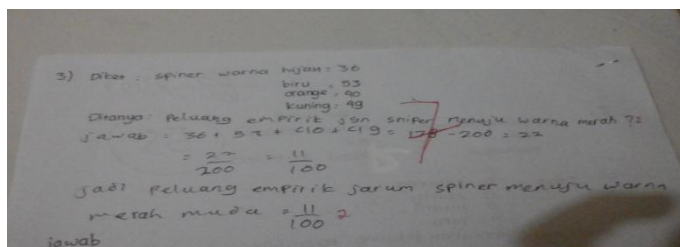 3) Diket : spiner warna hijau : 36
biru : 53
orange : 40
kuning : 49
Ditanya : Peluang empirik jsn sniper menuju warna merah ?2
jawab = 36 + 53 + 40 + 49 = 178 - 200 = 22
= 22/200 = 11/100
jadi peluang empirik jarum spiner menuju warna
merah muda = 11/100 2
jawab